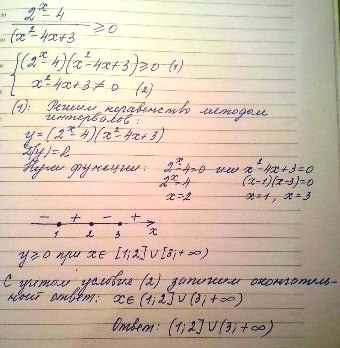 (2^x - 4)/(x² - 4x + 3 ≥ 0
{ (2^x - 4)(x² - 4x + 3) ≥ 0 (1)
x² - 4x + 3 ≠ 0 (2)
(1): Решим неравенство методом
интервалов:
y = (2^x - 4)(x² - 4x + 3)
D(y) = R
Нули функции: 2^x - 4 = 0 или x² - 4x + 3 = 0
2^x = 4 (x-1)(x-3) = 0
x = 2 x = 1, x = 3
- + - +
1 2 3 x
y ≥ 0 при x ∈ [1; 2] ∪ [3; +∞)
С учетом условия (2) запишем окончатель-
ный ответ: x ∈ (1; 2] ∪ (3; +∞)
Ответ: (1; 2] ∪ (3; +∞)